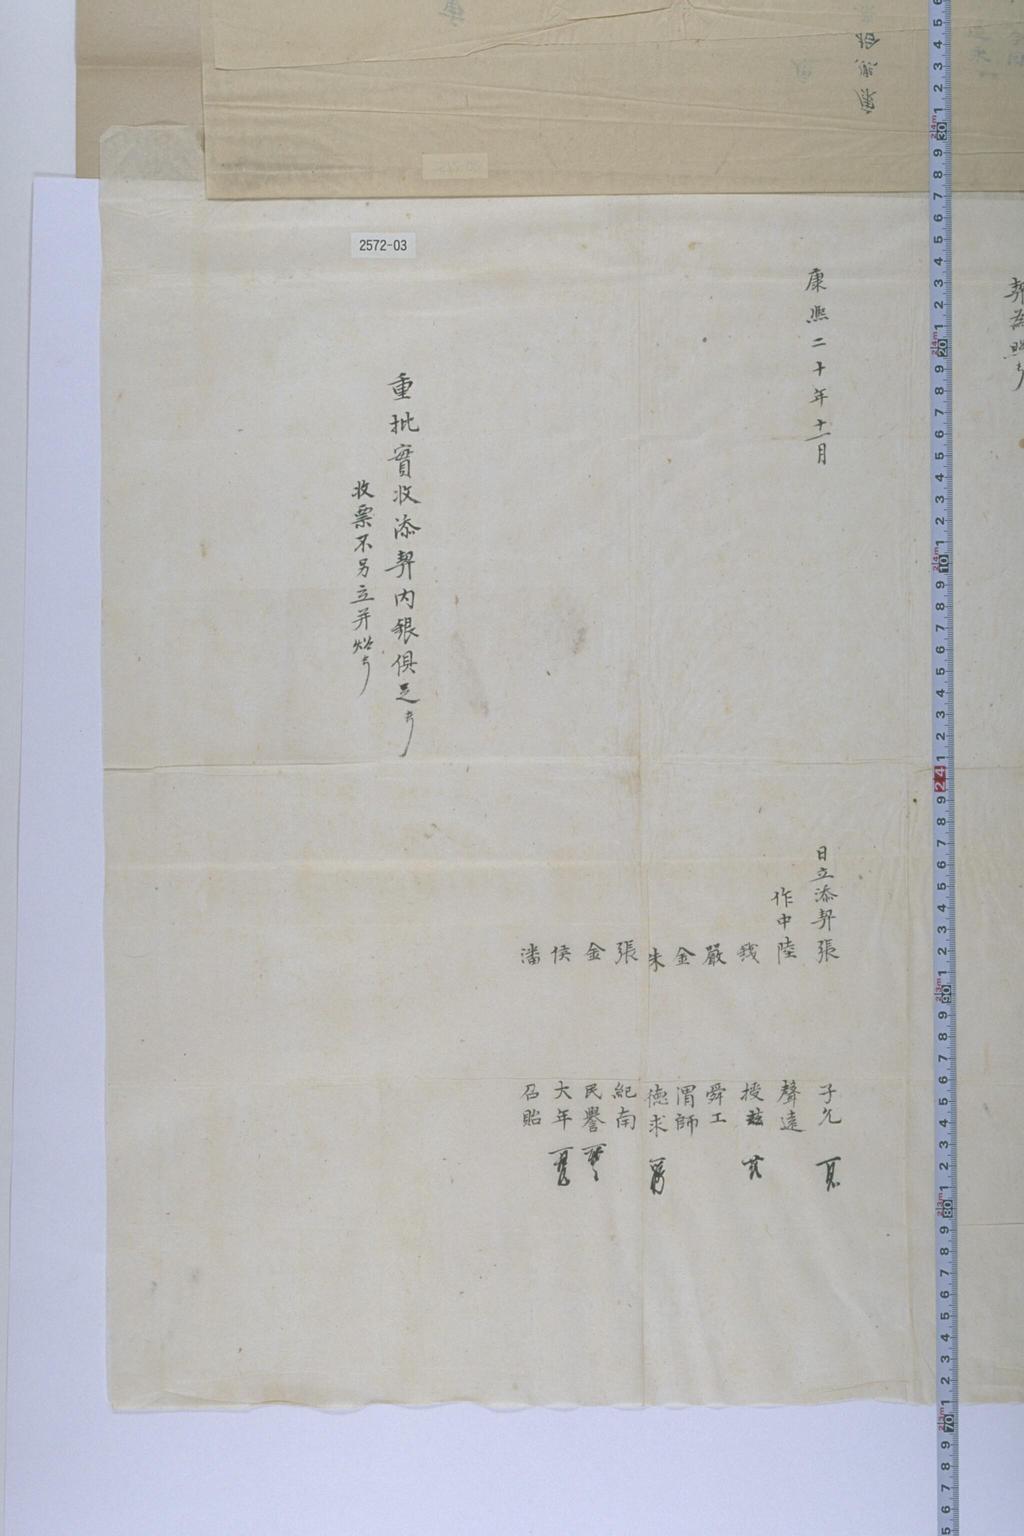 契為照
康熙二十年十一月
日立添契張 子允
作中陸 聲遠
錢 授兹
嚴 舜工
金 渭師
朱 德求
張 紀南
金 民譽
侯 大年
潘 召貽
重批實收添契內銀俱足
收票不另立并炤
2572-03